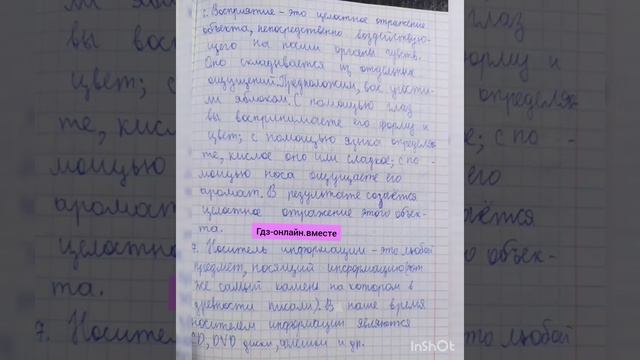 Восприятие - это целостное отражение
объекта, непосредственно воздействую-
щего на наши органы чувств.
Оно складывается из отдельных
ощущений. Предположим, вас угости-
ли яблоком. С помощью глаз
вы воспринимаете его форму и
цвет; с помощью языка определяе-
те, кислое оно или сладкое; с по-
мощью носа ощущаете его
аромат. В результате создаётся
целостное отражение этого объек-
та.
Гдз-онлайн.вместе
7. Носитель информации - это любой
предмет, носящий информацию(от
же самый камень на котором в
древности писали). В наше время
носителем информации являются
CD, DVD диски, флешки и др.
InShOt